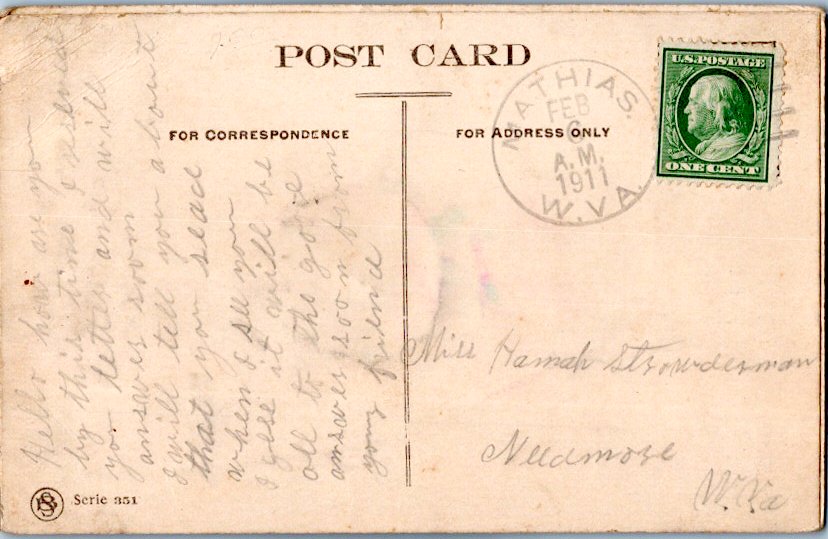 POST CARD
FOR CORRESPONDENCE
FOR ADDRESS ONLY
MATHIAS.
FEB
6
A.M.
1911
W.VA.
U.S. POSTAGE
ONE CENT
Hello how are you
by this time I
you letter and will
answer soom
I will tell you a bout
that you
when I see you
I it will be
all to the
answer soon from
your friend
Miss Hannah Strowderman
Needmore
W.Va
Serie 351